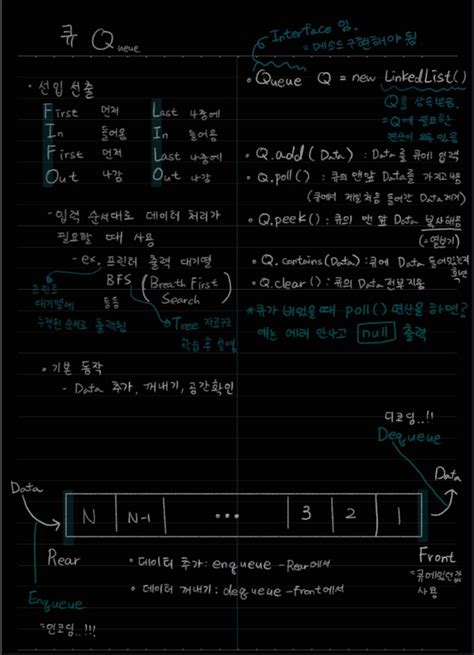 큐 Queue
• 선입 선출
First 먼저
In 들어옴
First 먼저
Out 나감
Last 나중에
In 들어옴
Last 나중에
Out 나감
- 입력 순서대로 데이터 처리가
필요할 때 사용
- ex. 프린터 출력 대기열
BFS (Breath First Search)
등등
프린트
대기열에
누적된 순서로 출력됨
Tree 자료구조
학습 후 설명
• 기본 동작
- Data 추가, 꺼내기, 공간확인
Interface 임.
= 메소드 구현해야 됨
• Queue Q = new LinkedList()
Q를 상속받음.
= Q에 필요한
연산이 들어 있음
• Q.add(Data) : Data를 큐에 입력
• Q.poll() : 큐의 맨앞 Data를 가지고나옴
(큐에서 제일 처음 들어간 Data 제거)
• Q.peek() : 큐의 맨 앞 Data 복사해옴
(=엿보기)
• Q.contains(Data) : 큐에 Data 들어있는지
확인
• Q.clear() : 큐의 Data 전부지움
* 큐가 비었을 때 poll() 연산을 하면?
얘는 에러 안나고 null 출력
디코딩..!!
Dequeue
Data
Data
N N-1 ... 3 2 1
Rear
Front
• 데이터 추가: enqueue - Rear에서
• 데이터 꺼내기: dequeue - front에서
Enqueue
=인코딩..!!!
사용